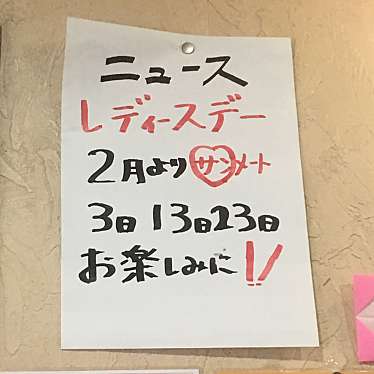 ニュース
レディースデー
2月より サンメート
3日 13日 23日
お楽しみに!!